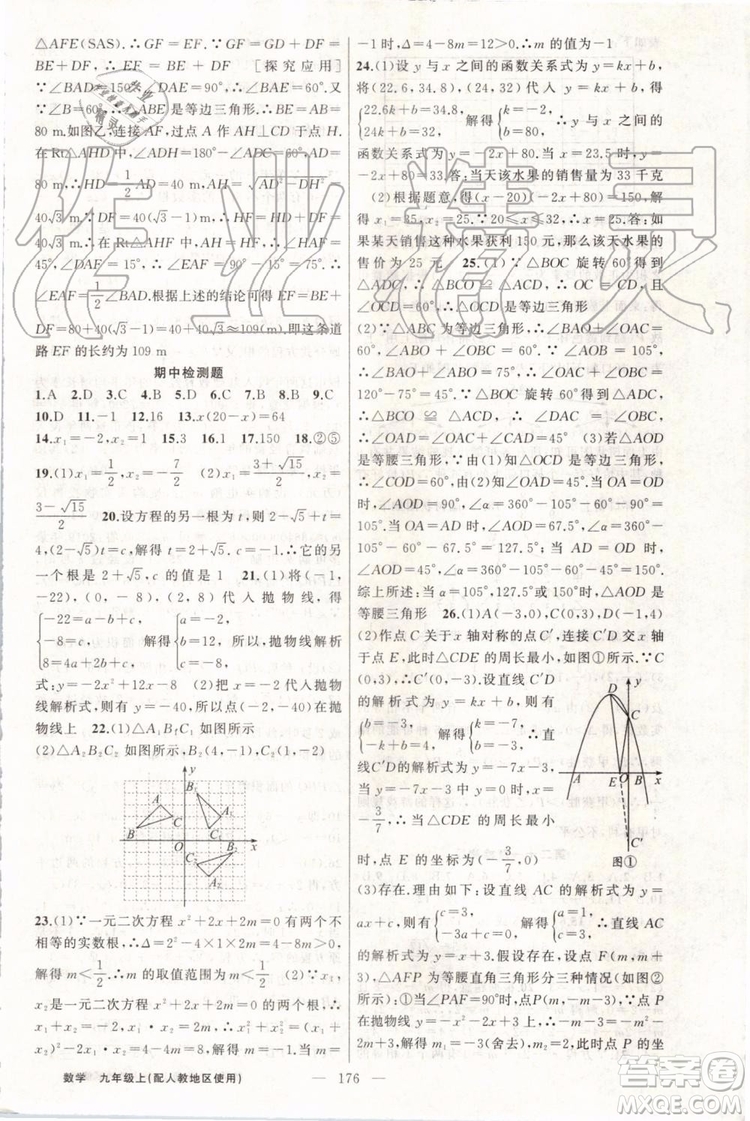 △AFE(SAS).∴GF=EF.又∵GF=GD+DF=
BE+DF,∴BE+DF=EF [探究应用]
∵∠BAD=150°,∠DAE=90°,∴∠BAE=60°.
又∵∠B=60°,∴△ABE是等边三角形,∴BE=AB=
80 m.如图乙,连接AF,过点A作AH⊥CD于点H,在
Rt△AHD中,∠ADH=180°-∠ADC=60°,∴∠HAD=
30°,∴HD=1/2 AD=40 m,AH=√(AD²-HD²)=
40√3 m.∵DF=40(√3-1)m,∴HF=HD+DF=
40√3 m.∴在Rt△AHF中,AH=HF,∴∠HAF=45°,
∴∠DAF=15°,∴∠EAF=90°-15°=75°,
∴∠EAF=1/2∠BAD.按照上述的结论可得EF=BE+
DF=80+40(√3-1)=40√3+40≈109(m).即这条道
路EF的长约为109 m
期中检测题
1.A 2.D 3.C 4.B 5.C 6.D 7.B 8.B 9.C
10.D 11.-2 12.16 13.x(20-x)=64
14.x₁=-2,x₂=1 15.3 16.1 17.150 18.②⑤
19.(1)x₁=-1/2,x₂=-7/2 (2)x₁=(3+√15)/2,x₂=
(3-√15)/2 20.设方程的另一根为t,则2-√5+t=
4,(2-√5)t=c,解得t=2+√5,c=-1.∴它的另
一个根是2+√5,c的值是-1 21.(1)将(-1,
-22),(0,-8),(2,8)代入抛物线,得
{-22=a-b+c, -8=c, 8=4a+2b+c, 解得{a=-2, b=12, c=-8, 所以,抛物线解析
式:y=-2x²+12x-8 (2)把x=-2代入抛物
线解析式,则有y=-40,所以点P(-2,-40)在
抛物线上 22.(1)△A₁B₁C₁如图所示
(2)△A₂B₂C₂如图所示,B₂(4,-1),C₂(1,-2)
y
B₁
B
A₁
C
A
C₁
O
x
C₂
B₂
A₂
23.(1)∵一元二次方程x²+2x+2m=0有两个不
相等的实数根,∴Δ=2²-4×1×2m=4-8m>0,
解得m<1/2.∴m的取值范围为m<1/2 (2)∵x₁,
x₂是一元二次方程x²+2x+2m=0的两个根,
∴x₁+x₂=-2,x₁·x₂=2m,∴x₁²+x₂²=(x₁+
x₂)²-2x₁·x₂=4-4m=8,解得m=-1.当m=
-1时,Δ=4-8m=12>0.∴m的值为-1
24.(1)设y与x之间的函数关系式为y=kx+b,
将(22.6,34.8),(24,32)代入y=kx+b,得
{22.6k+b=34.8, 24k+b=32, 解得{k=-2, b=80, ∴y与x之间的
函数关系式为y=-2x+80.当x=23.5时,y=
-2x+80=33.答:当天该水果的销售量为33千克
(2)根据题意,得(x-20)(-2x+80)=150,解
得x₁=35,x₂=25.∵20≤x≤32,∴x=25.答:如
果某天销售这种水果获利150元,那么该天水果的
售价为25元 25.(1)∵△BOC旋转60°得到
△ACD,∴△BOC≌△ACD,∴OC=CD,
且∠OCD=60°,∴△OCD是等边三角形
(2)∵△ABC为等边三角形,∴∠BAO+∠OAC=
60°,∠ABO+∠OBC=60°.∵∠AOB=
120°,∴∠BAO+∠ABO=60°,∴∠OAC+
∠OBC=60°.∵△BOC旋转60°得到△ACD,
∴△BCO≌△ACD,∴∠OBC=∠DAC,
∴∠OAD=∠OAC+∠OBC=60° (3)若△AOD
是等腰三角形,∵由(1)知△OCD是等边三角形,
∴∠COD=60°,由(2)知∠OAD=60°,当OA=OD时,
∠AOD=90°,∴∠α=360°-105°-60°-90°=
105°.当OA=AD时,∠AOD=67.5°,∴∠α=360°-
105°-60°-67.5°=127.5°.当AD=OD时,
∠AOD=45°,∴∠α=360°-105°-60°-45°=150°.
综上所述:当α=105°,127.5°或150°时,△AOD是
等腰三角形 26.(1)A(-3,0),C(0,3),D(-1,4)
(2)作点C关于x轴对称的点C′,连接C′D交x轴
于点E,此时△CDE的周长最小,如图①所示.
∵C(0,3),∴C′(0,-3).设直线
C′D的解析式为y=kx+b,则有
{b=-3, -k+b=4, 解得{k=-7, b=-3, ∴直
线C′D的解析式为y=-7x-3,
当y=-7x-3中y=0时,x=
-3/7,∴当△CDE的周长最小
时,点E的坐标为(-3/7,0)
y
D
C
E
O
x
C′
图①
(3)存在.理由如下:设直线AC的解析式为y=
ax+c,则有{c=3, -3a+c=0, 解得{a=1, c=3, ∴直线AC
的解析式为y=x+3,假设存在,设点F(m,m+
3),△AFP为等腰直角三角形分三种情况(如图②
所示):①当∠PAF=90°时,点P(m,-m-3),∵点P
数学 九年级上(配人教地区使用)
— 176 —
作业精灵
作业精灵
答案圈
MXQE.COM